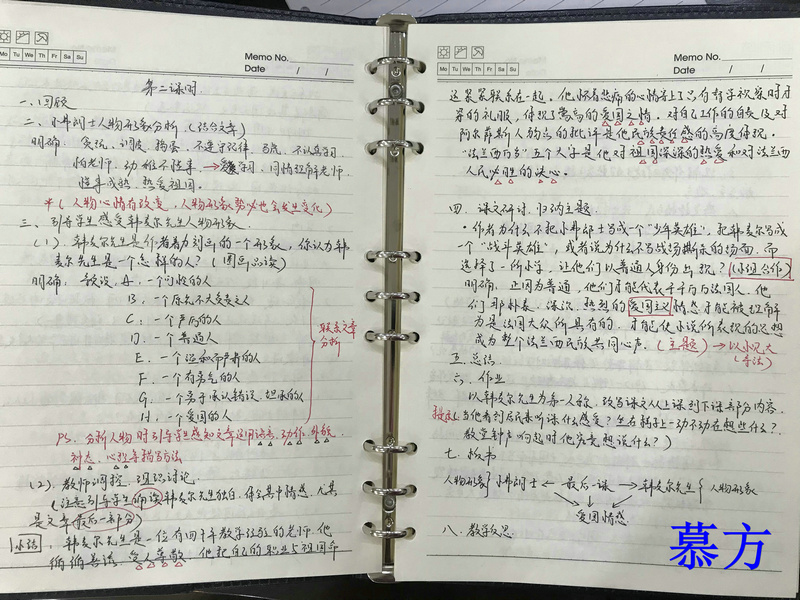 Mo Tu We Th Fr Sa Su
Memo No.
Date / /
第二课时
一、回顾
二、小弗朗士人物形象分析（结合文章）
明确：贪玩、调皮、
怕老师、幼稚不懂事 → 爱学习、同情理解老师
懂事成熟、热爱祖国。
*（人物心情有改变，人物形象势必也会发生变化）
三、引导学生感受韩麦尔先生人物形象.
（1）、韩麦尔先生是作者着力刻画的一个形象，你认为韩
麦尔先生是一个怎样的人？（圈画品读）
明确：预设，A、一个可敬的人
B、一个原先不大负责之人
C、一个严厉的人
D、一个普通人
E、一个温和而严肃的人
F、一个有勇气的人
G、一个善于承认错误、坦承的人
H、一个爱国的人
联系文章
分析
PS、分析人物时引导学生感知文章运用语言，动作，外貌，
神态、心理等描写方法
（2）、教师调控、组织讨论.
（注意引导学生朗读韩麦尔先生独白，体会其中情感，尤其
是文章最后一部分）
小结、韩麦尔先生是一位有四十年教学经验的老师，他
循循善诱，受人尊敬，他把自己的职业与祖国命
Mo Tu We Th Fr Sa Su
Memo No.
Date / /
运紧紧联系在一起。他怀着悲痛的心情穿上了只有督学视察时才
穿的礼服，体现了崇高的爱国之情，对自己工作的自责及对
阿尔萨斯人的缺点的批评是他民族责任感的高度体现。
“法兰西万岁”五个大字是他对祖国深深的热爱和对法兰西
人民必胜的决心。
四、课文研讨，归纳主题.
·作者为什么不把小弗郎士写成一个“少年英雄”，把韩麦尔写成
一个“战斗英雄”，或者说为什么不写战场厮杀的场面，而
选择了一所小学，让他们以普通人身份出现？（小组合作）
明确：正因为普通，他们才能代表千千万万法国人，他
们那朴素、深沉、热烈的爱国主义情感才能被理解
为是法国大众所具有的，才能使小说所表现的思想
成为整个法兰西民族共同心声.（主题）→以小见大
（手法）
五、总结
六、作业
以韩麦尔先生为第一人称，改写课文从上课到下课部分内容.
当他看到居民来听课什么感受？坐在椅子上一动不动在想些什么？
教堂钟声响起时他究竟想说什么？）
七、板书
人物形象 小弗朗士 ← 最后一课 → 韩麦尔先生 人物形象
爱国情感
八、教学反思
慕方